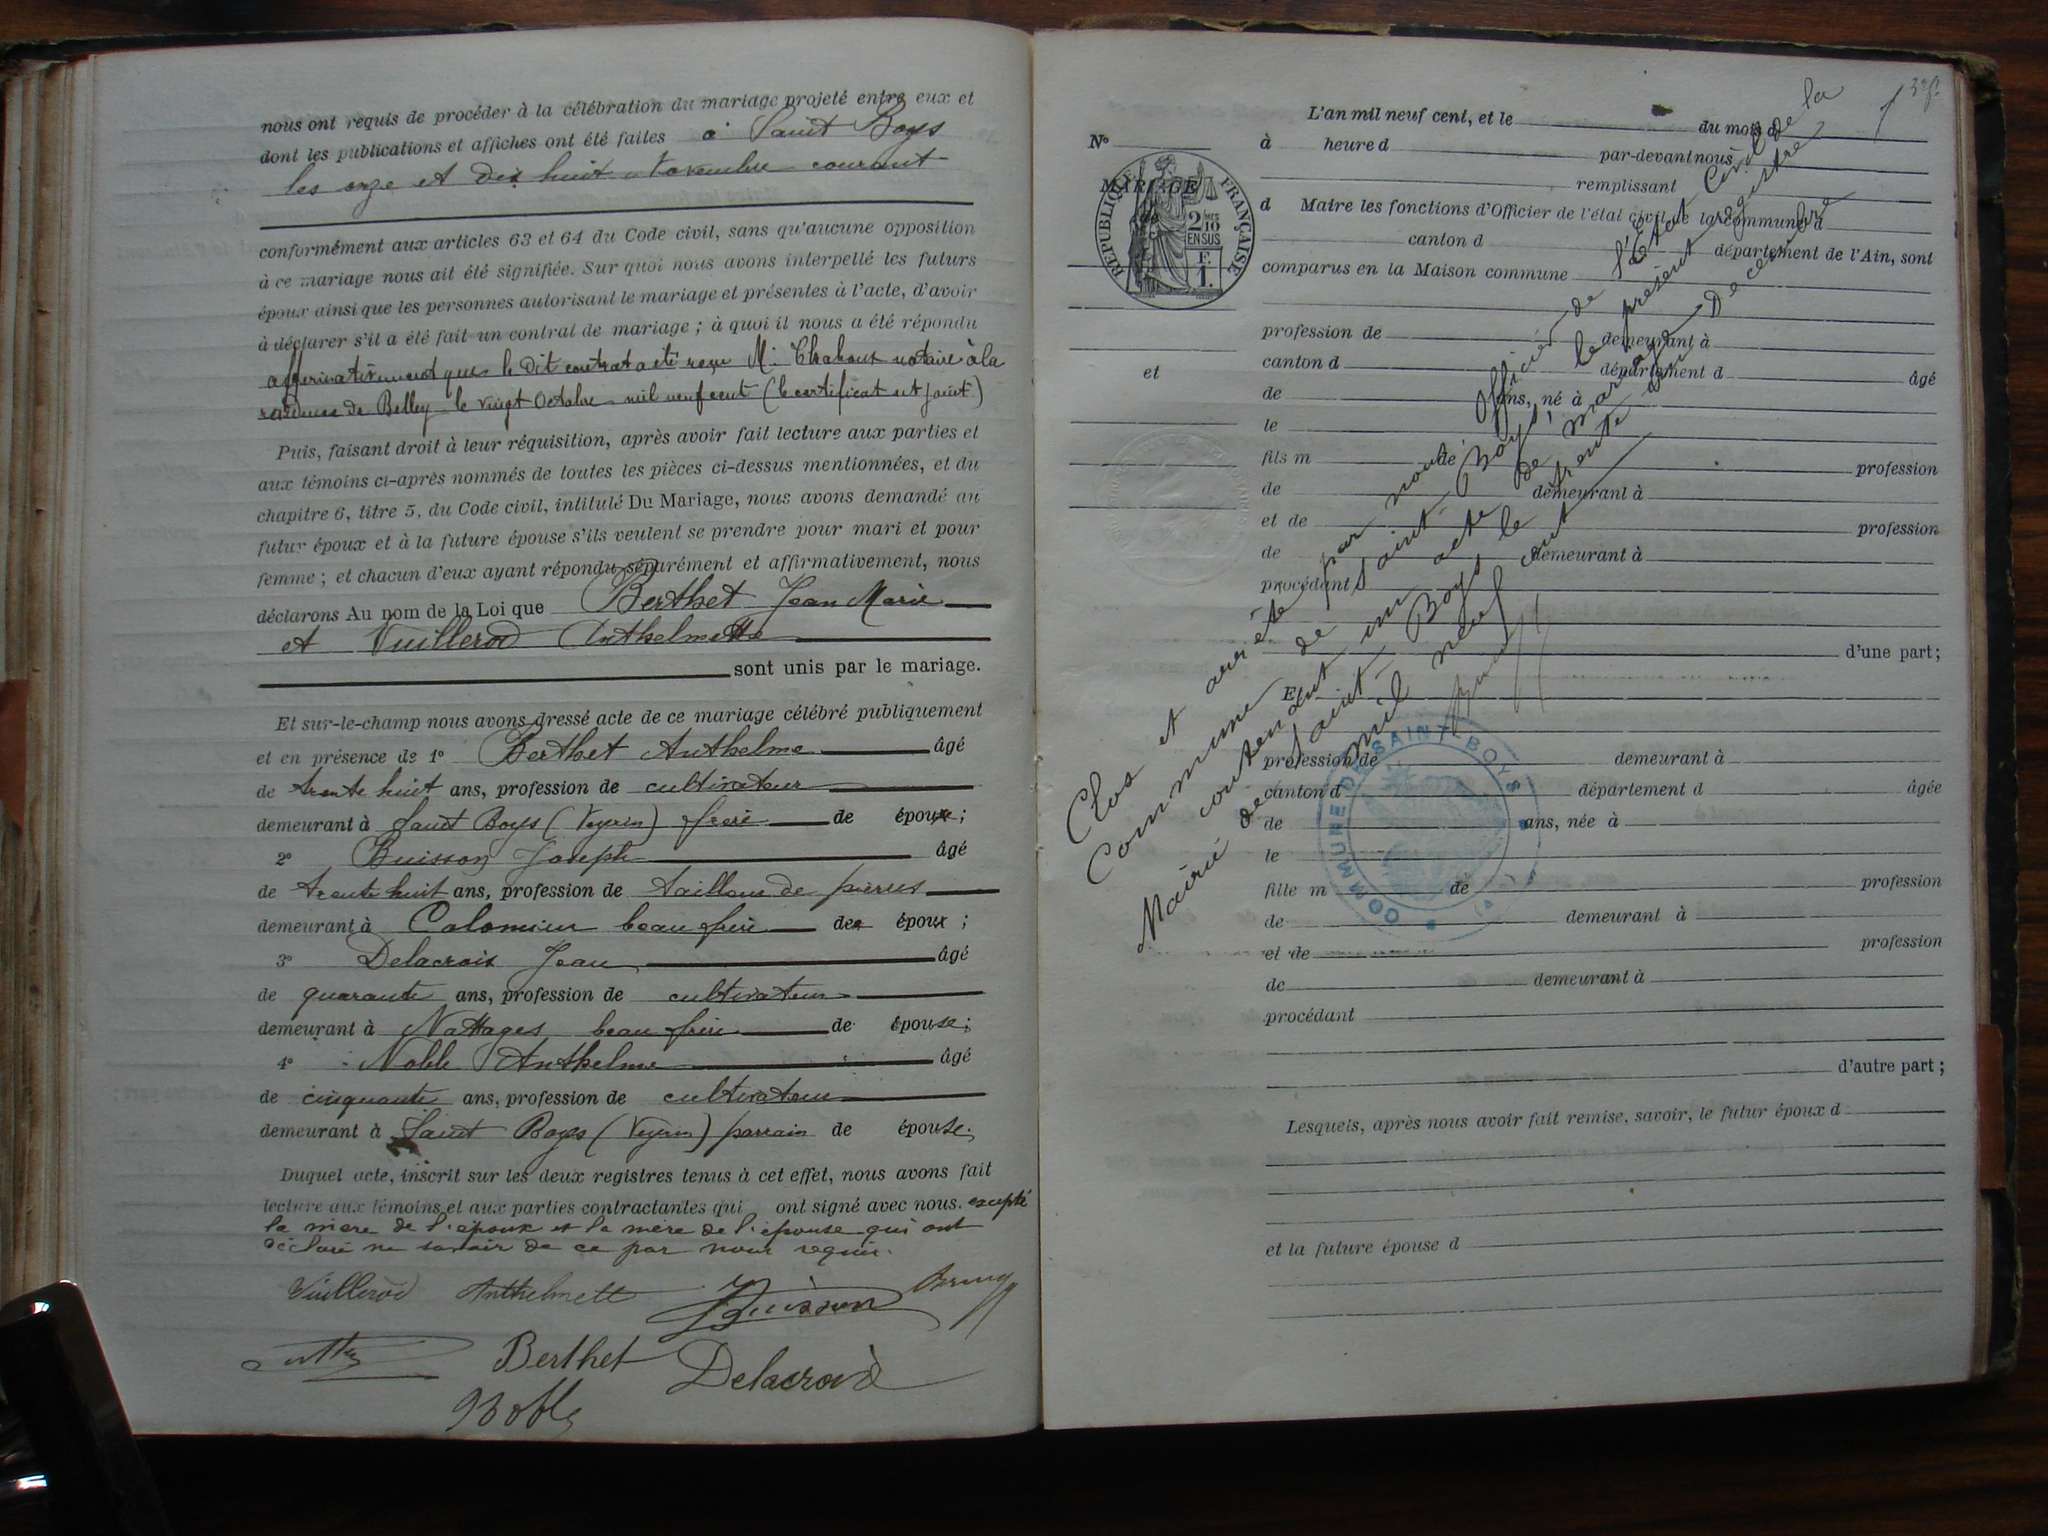 nous ont requis de procéder à la célébration du mariage projeté entre eux et
dont les publications et affiches ont été faites à Saint Boys
les onze et dix huit Novembre courant
conformément aux articles 63 et 64 du Code civil, sans qu'aucune opposition
à ce mariage nous ait été signifiée. Sur quoi nous avons interpellé les futurs
époux ainsi que les personnes autorisant le mariage et présentes à l'acte, d'avoir
à déclarer s'il a été fait un contrat de mariage ; à quoi il nous a été répondu
affirmativement que le dit contrat a été reçu Me notaire à la
résidence de Belley le vingt Octobre mil neuf cent (le certificat est joint)
Puis, faisant droit à leur réquisition, après avoir fait lecture aux parties et
aux témoins ci-après nommés de toutes les pièces ci-dessus mentionnées, et du
chapitre 6, titre 5, du Code civil, intitulé Du Mariage, nous avons demandé au
futur époux et à la future épouse s'ils veulent se prendre pour mari et pour
femme ; et chacun d'eux ayant répondu séparément et affirmativement, nous
déclarons Au nom de la Loi que Berthet Jean Marie
et Vuillerod Anthelmette
sont unis par le mariage.
Et sur-le-champ nous avons dressé acte de ce mariage célébré publiquement
et en présence de 1° Berthet Anthelme âgé
de trente huit ans, profession de cultivateur
demeurant à Saint Boys (Veyrin) frère de époux ;
2° Buisson Joseph âgé
de trente huit ans, profession de tailleur de pierres
demeurant à Colomieu beau frère des époux ;
3° Delacroix Jean âgé
de quarante ans, profession de cultivateur
demeurant à Nattages beau frère de épouse ;
4° Noble Anthelme âgé
de cinquante ans, profession de cultivateur
demeurant à Saint Boys (Veyrin) parrain de épouse.
Duquel acte, inscrit sur les deux registres tenus à cet effet, nous avons fait
lecture aux témoins et aux parties contractantes qui ont signé avec nous. excepté
la mère de l'époux et la mère de l'épouse qui ont
déclaré ne savoir de ce par nous requis.
Vuillerod Anthelmette Buisson
Berthet Delacroix
Noble
L'an mil neuf cent, et le du mois d
N° à heure d par-devant nous
MARIAGE
RÉPUBLIQUE FRANÇAISE
2/10 MES
EN SUS
F.
1.
remplissant
d Maire les fonctions d'Officier de l'état civil de la commune d
canton d département de l'Ain, sont
comparus en la Maison commune
profession de demeurant à
canton d département d âgé
et
de ans, né à
le
fils m de profession
de demeurant à
et de profession
de demeurant à
procédant
d'une part ;
Et
profession de demeurant à
canton d département d âgée
de ans, née à
le
fille m de profession
de demeurant à
et de profession
de demeurant à
procédant
d'autre part ;
Lesquels, après nous avoir fait remise, savoir, le futur époux d
et la future épouse d
Clos et arrêté par nous, Officier de l'État Civil de la
Commune de Saint-Boys, le présent registre
contenant un acte de mariage
Mairie de Saint-Boys le trente un Décembre
mil neuf cent
COMMUNE DE SAINT BOYS